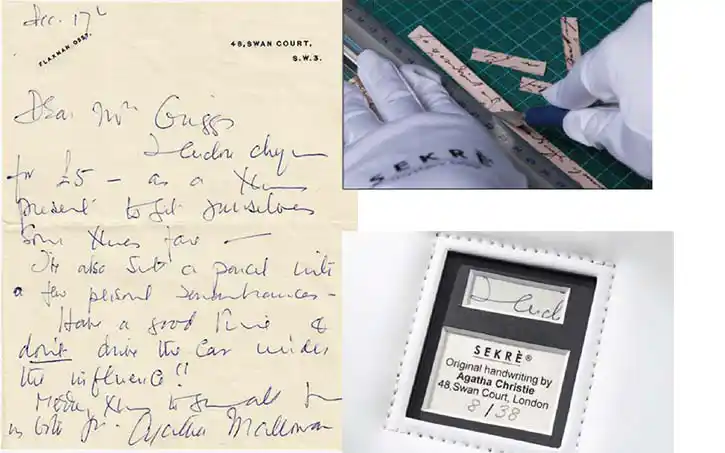 Dec. 17th
FLAXMAN
48, SWAN COURT,
S.W.3.
Dear Mr Griggs
I enclose cheque
for £5 — as a Xmas
present to get yourselves
some Xmas fare —
I've also sent a parcel with
a few personal remembrances —
Have a good time &
don't drive the car under
the influence!!
Merry Xmas to you all from
us both
Agatha Mallowan
SEKRÈ
I encl
SEKRÈ®
Original handwriting by
Agatha Christie
48,Swan Court, London
8/38